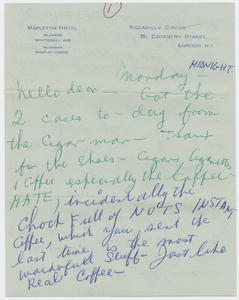 1
MAPLETON HOTEL
TELEPHONE
WHITEHALL
TELEGRAMS
PICCADILLY CIRCUS
39, COVENTRY STREET,
LONDON. W.1
MIDNIGHT.
Monday—
hello dear — Got the
2 cases to-day from
the Cigar man —
for the shoes — Cigars, Cigarettes
& Coffee especially the Coffee—
HATE, incidentally the
Chock Full of NUTS INSTANT
Coffee, which you sent me
last time, is the most
wonderful stuff — Just like
Real Coffee—